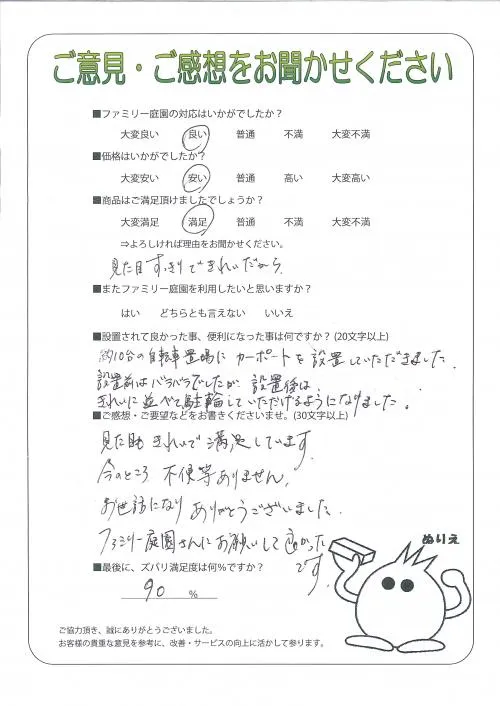 ご意見・ご感想をお聞かせください
■ファミリー庭園の対応はいかがでしたか？
大変良い 良い 普通 不満 大変不満
■価格はいかがでしたか?
大変安い 安い 普通 高い 大変高い
■商品はご満足頂けましたでしょうか？
大変満足 満足 普通 不満 大変不満
⇒よろしければ理由をお聞かせください。
見た目すっきりできれいだから
■またファミリー庭園を利用したいと思いますか？
はい どちらとも言えない いいえ
■設置されて良かった事、便利になった事は何ですか？(20文字以上)
約10台の自転車置場にカーポートを設置していただきました。
設置前はバラバラでしたが設置後は、
きれいに並べて駐輪していただけるようになりました。
■ご感想・ご要望などをお書きくださいませ。(30文字以上)
見た目もきれいで満足しています。
今のところ不便等ありません。
お世話になりありがとうございました。
ファミリー庭園さんにお願いして良かった
です。
ぬりえ
■最後に、ズバリ満足度は何％ですか？
90 %
ご協力頂き、誠にありがとうございました。
お客様の貴重な意見を参考に、改善・サービスの向上に活かして参ります。